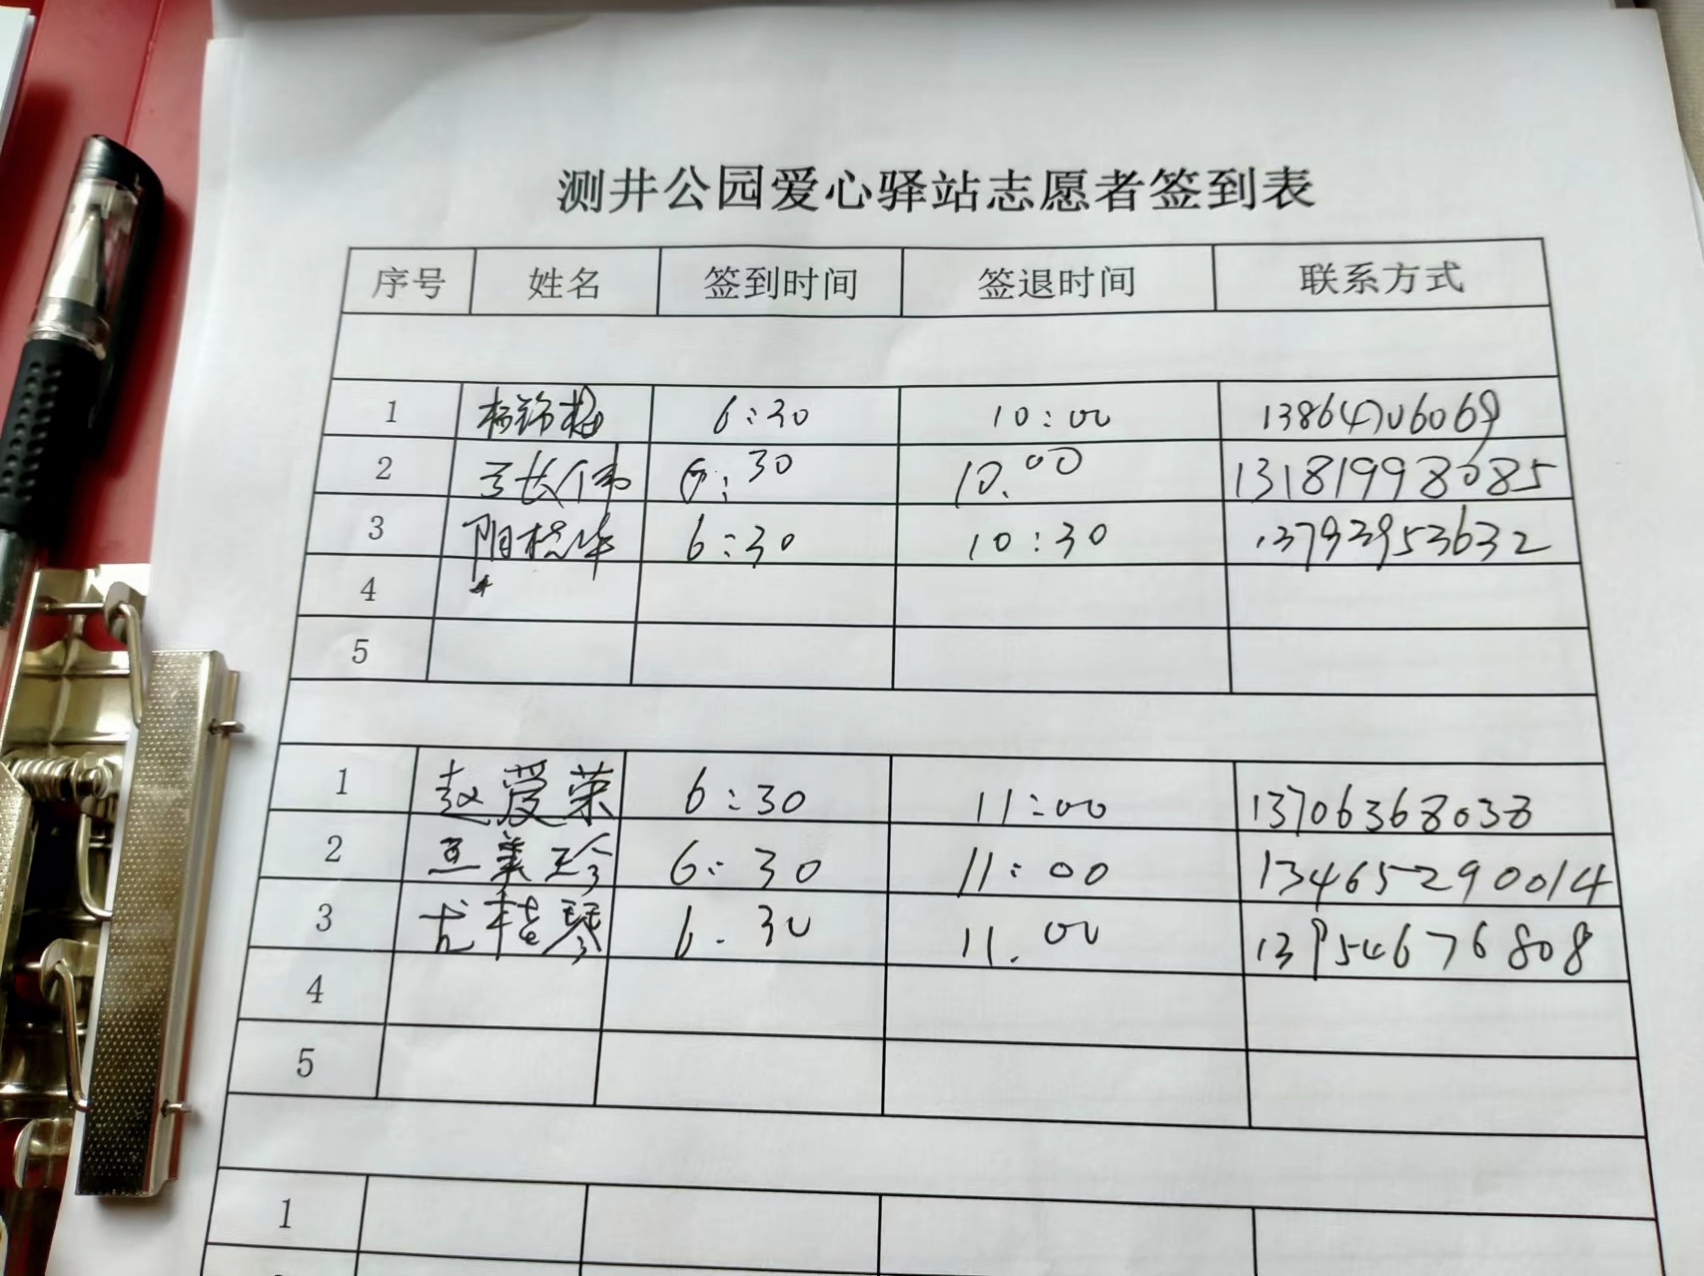 测井公园爱心驿站志愿者签到表
序号 姓名 签到时间 签退时间 联系方式
1 杨锦梅 6:30 10:00 13864706069
2 6:30 10.00 13181998085
3 阳桂华 6:30 10:30 13793953632
4
5
1 赵爱荣 6:30 11:00 13706368038
2 王美珍 6:30 11:00 13465290014
3 尤桂琴 6.30 11.00 13954676808
4
5
1